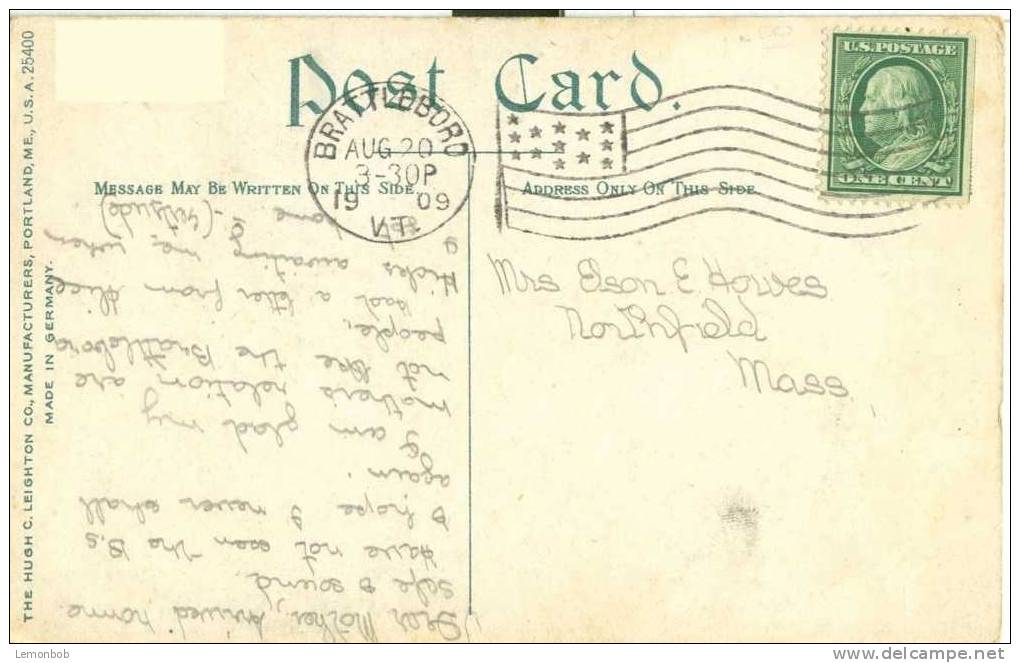 THE HUGH C. LEIGHTON CO., MANUFACTURERS, PORTLAND, ME., U.S.A. 25400
MADE IN GERMANY.
Post Card.
MESSAGE MAY BE WRITTEN ON THIS SIDE.
ADDRESS ONLY ON THIS SIDE.
BRATTLEBORO
AUG 20
3-30P
1909
VT.
U.S. POSTAGE
ONE CENT
Mrs Elson E. Howes
Northfield
Mass.
Dear Mother, Arrived home
safe & sound.
Have not seen the B.s
& hope I never shall
again.
I am glad my
mothers relation are
not like the Brattleboro
people,
had a letter from Alice
Hicks awaiting me, when
I
home
(Gertrude)
Lemonbob
delcampe.net